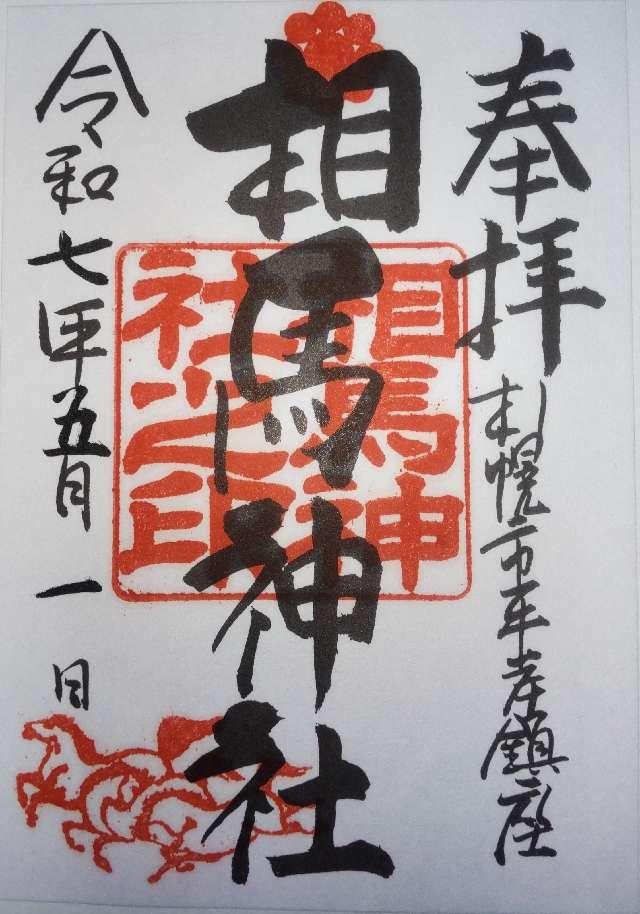 奉拝
札幌市平岸鎮座
相馬神社
相馬神
社之印
令和七年五月一日